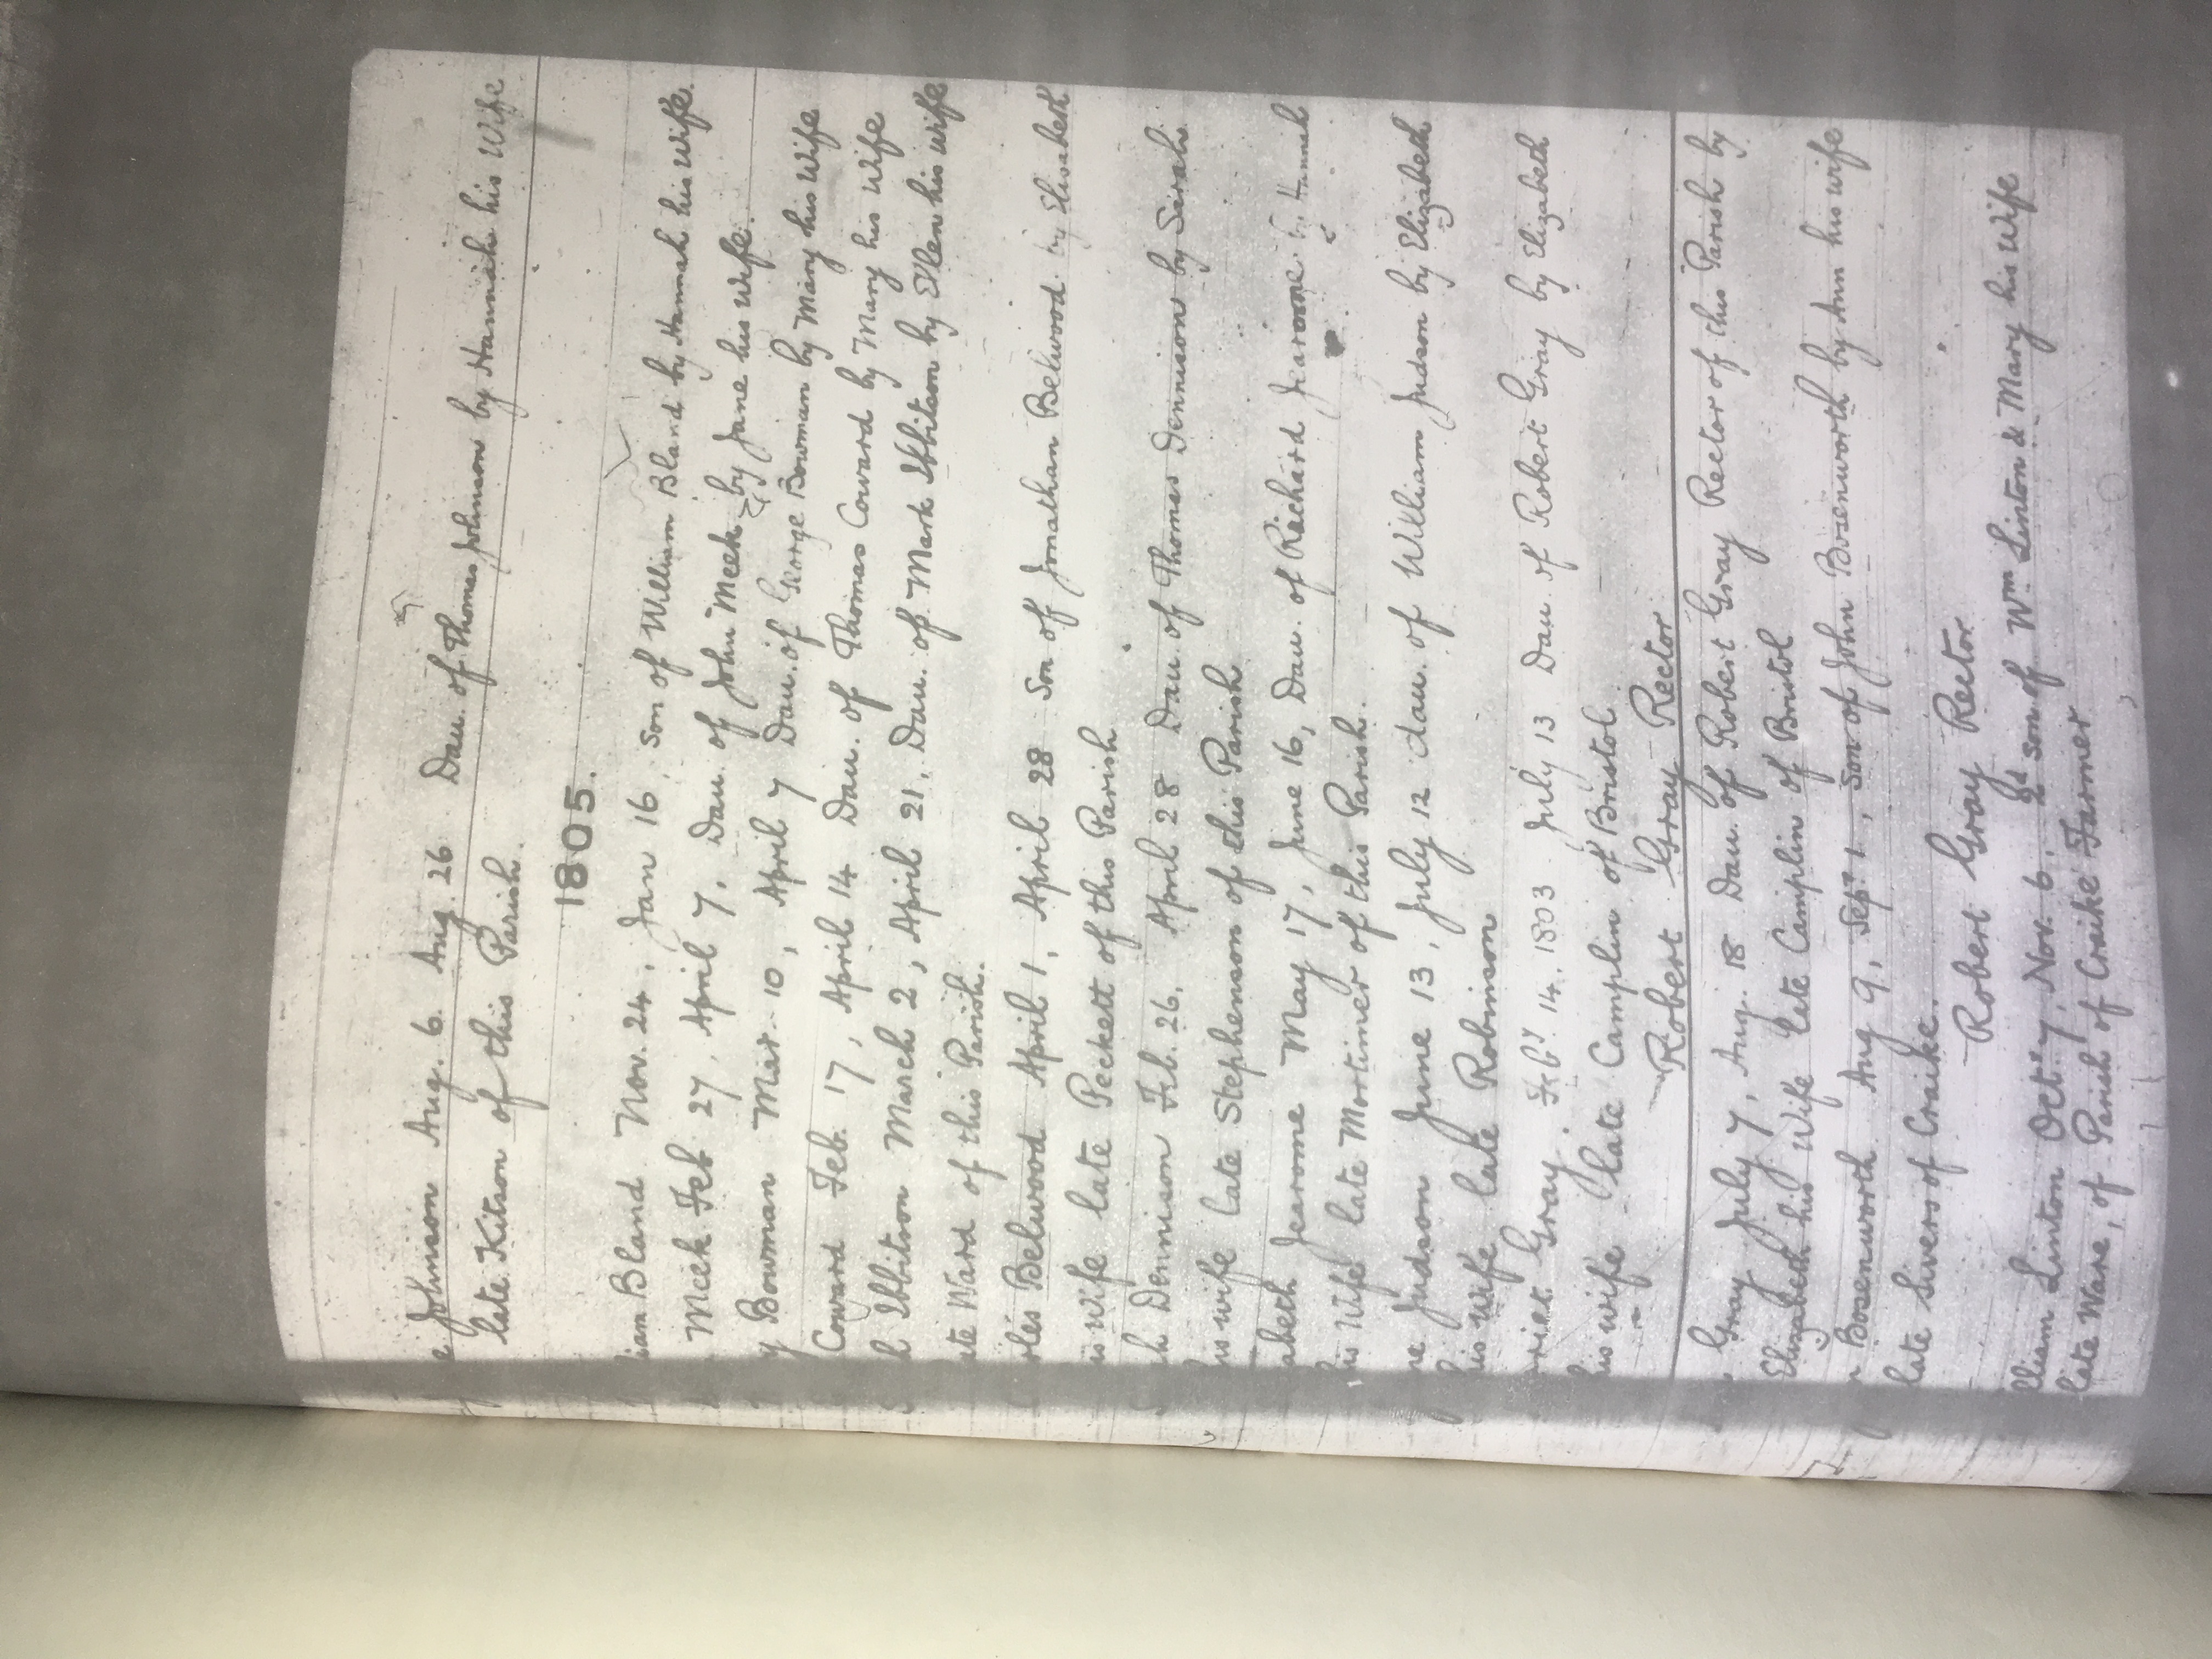 Johnson Aug. 6. Aug. 26 Dau. of Thomas Johnson by Hannah his Wife
late Kitson of this Parish.
1805.
iam Bland Nov. 24, Jan 16, Son of William Bland by Hannah his Wife.
Meek Feb 27, April 7, Dau. of John Meek by Jane his Wife.
y Bowman Mar 10, April 7 Dau. of George Bowman by Mary his Wife
Coward Feb. 17, April 14 Dau. of Thomas Coward by Mary his Wife
Ibbitson March 2, April 21, Dau. of Mark Ibbitson by Ellen his wife
ate Ward of this Parish.
rles Belwood April 1, April 28 Son of Jonathan Belwood by Elisabeth
is wife late Peckett of this Parish
h Dennison Feb. 26, April 28 Dau. of Thomas Dennison by Sarah
his wife late Stephenson of this Parish
abeth Jearome May 17, June 16, Dau. of Richard Jearome by Hannah
his Wife late Mortimer of this Parish.
ne Judson June 13, July 12 dau. of William Judson by Elizabeth
his Wife late Robinson
rriet Gray. Feby. 14. 1803 July 13 Dau. of Robert Gray by Elizabeth
his wife late Camplin of Bristol.
Robert Gray Rector
Gray July 7, Aug. 18 Dau. of Robert Gray Rector of this Parish by
Elizabeth his Wife late Camplin of Bristol
Bosenworth Aug 9, Sept 1, Son of John Bosenworth by Ann his wife
late Sivers of Craike.
Robert Gray Rector
lliam Linton Octr. 7, Nov. 6. 2d son of Wm Linton & Mary his Wife
late Ware, of Parish of Craike Farmer